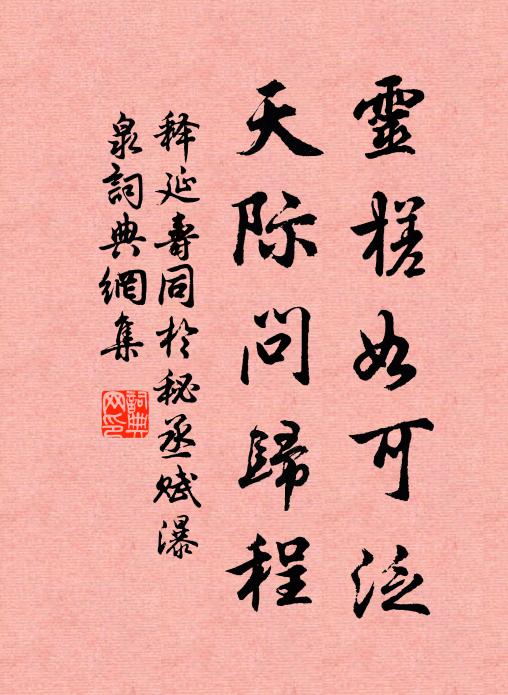 靈槎如可泛
天际问歸程
释延壽同於秘丞赋瀑
泉詞典網集
詞典
网印